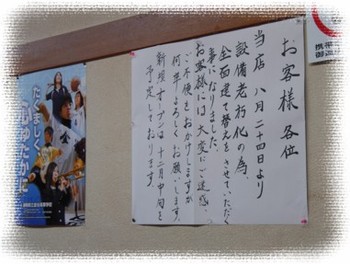 お客様各位
当店 八月二十四日より
設備老朽化の為、
全面建て替えをさせていただく
事になりました。
お客様には大変にご迷惑、
ご不便をおかけしますが
何卒よろしくお願いします。
新規オープンは十二月中旬を
予定しております。
たくましく、
携帯